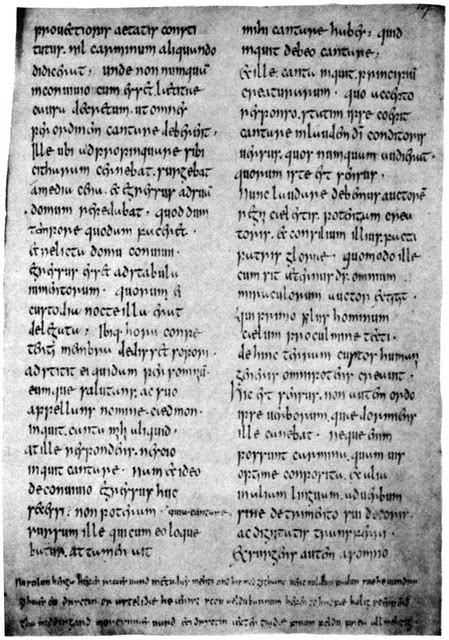 prouectioris aetatis consti
tutus. nil carminum aliquando
didicerat; unde non numquā
in conuiuio cum esset laetitiae
causa decretum. ut omnes
per ordinem cantare deberent;
ille ubi adpropinquare sibi
citharam cernebat. surgebat
a media cena. et egressus ad suā
domum repedabat. quod dum
tempore quodam faceret.
et relicta domu conuiui
egressus esset ad stabula
iumentorum. quorum ei
custodia nocte illa erat
delegata; ibique hora conpe
tenti membra dedisset sopori.
adstitit ei quidam per somniū
eumque salutans. ac suo
appellans nomine. caedmon.
inquit. canta mihi aliquid.
at ille respondens. nescio
inquit cantare. nam et ideo
de conuiuio egressus huc
secessi. non poteram. quia cantare.
rursum ille qui cum eo loque
batur. attamen ait
mihi cantare habes; quid
inquit debeo cantare;
et ille. canta inquit. principiū
creaturarum. quo accepto
responso. statim ipse coepit
cantare in laudem dī conditoris
uersus. quos numquam audierat.
quorum iste est sensus.
Nunc laudare debemus auctorē
regni caelestis. potentiam crea
toris. et consilium illius. facta
patris gloriae. quomodo ille
cum sit aeternus dş. omnium
miraculorum auctor extitit.
qui primo filiis hominum
caelum pro culmine tecti.
dehinc terram custos humani
generis omnipotens creauit.
Hic est sensus. non autem ordo
ipse uerborum. quae dormiens
ille canebat. neque enim
possunt carmina. quamuis
optime conposita. ex alia
in aliam linguam. ad uerbum
sine detrimento sui decoris.
ac dignitatis transferri;
Exsurgens autem a somno
Nu scilun herga hefenricaes uard metudaes mehti and his modgithanc uerc uuldurfadur sue he uundra
gihuaes eci dryctin or astelidae he aerist scop aeldubarnum hefen to hrofae halig sceppend
tha middingard moncynnaes uard eci dryctin aefter tiadae firum foldu frea allmehtig